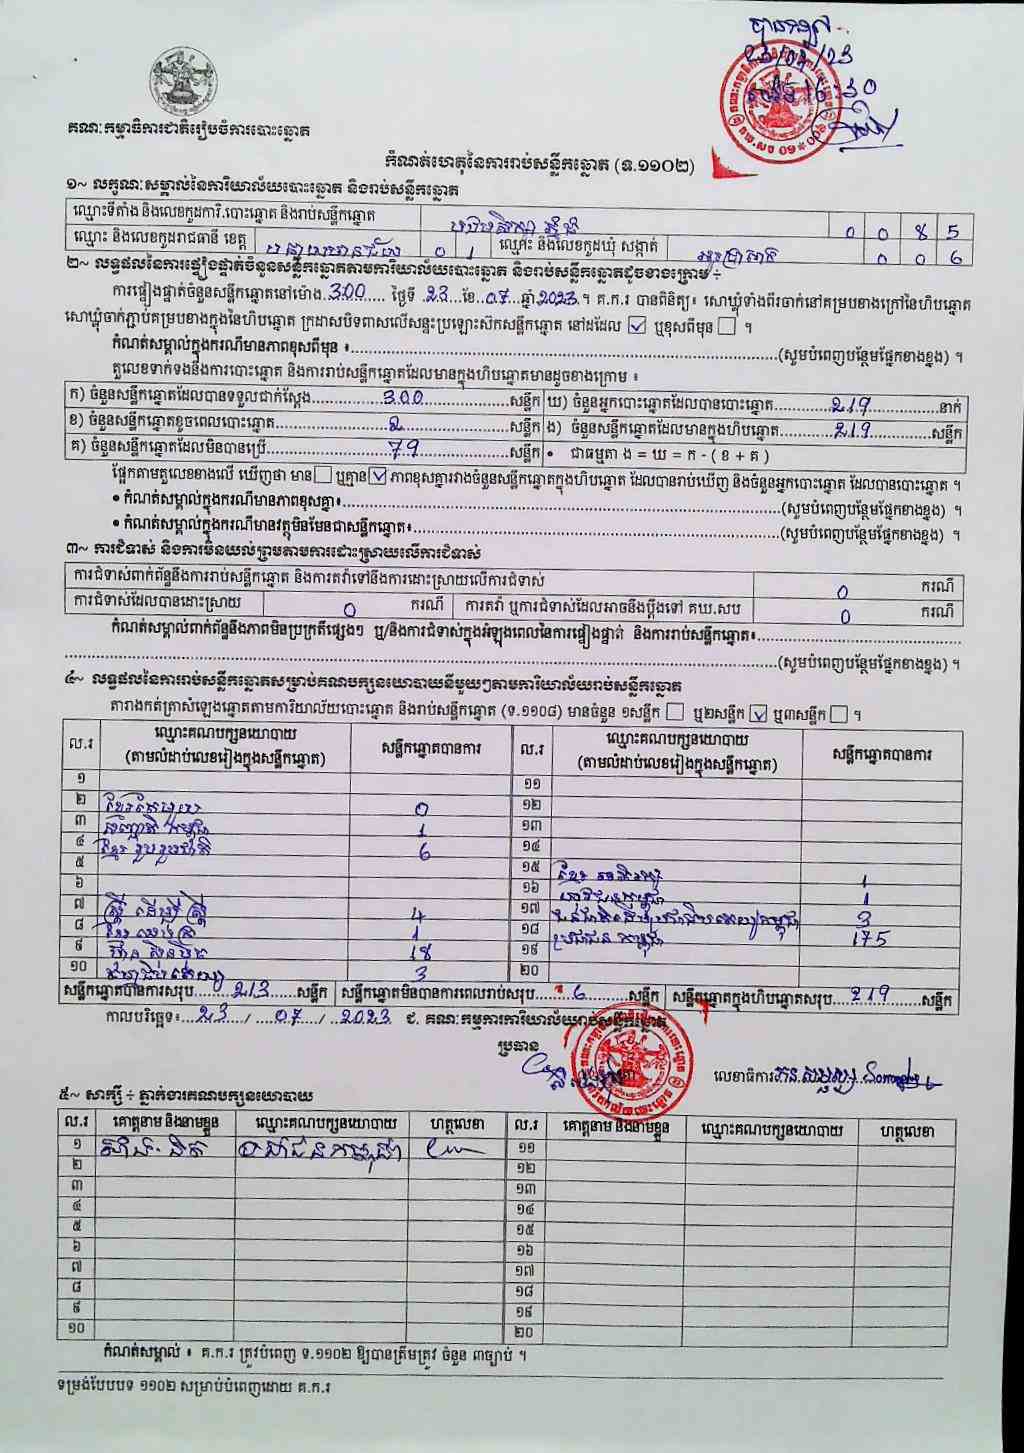 23/07/23
16:30
គណៈកម្មាធិការជាតិរៀបចំការបោះឆ្នោត
កំណត់ហេតុនៃការរាប់សន្លឹកឆ្នោត (ទ.១១០២)
១~ លក្ខណៈសម្គាល់នៃការិយាល័យបោះឆ្នោត និងរាប់សន្លឹកឆ្នោត
ឈ្មោះទីតាំង និងលេខកូដការិ.បោះឆ្នោត និងរាប់សន្លឹកឆ្នោត 0 0 8 5
ឈ្មោះ និងលេខកូដរាជធានី ខេត្ត បន្ទាយមានជ័យ 0 1 ឈ្មោះ និងលេខកូដឃុំ សង្កាត់ 0 0 6
២~ លទ្ធផលនៃការផ្ទៀងផ្ទាត់ចំនួនសន្លឹកឆ្នោតតាមការិយាល័យបោះឆ្នោត និងរាប់សន្លឹកឆ្នោតដូចខាងក្រោម ÷
ការផ្ទៀងផ្ទាត់ចំនួនសន្លឹកឆ្នោតនៅម៉ោង 3:00 ថ្ងៃទី 23 ខែ 07 ឆ្នាំ 2023 ។ គ.ក.រ បានពិនិត្យ៖ សោឃ្លុំទាំងពីរចាក់នៅគម្របខាងក្រៅនៃហិបឆ្នោត
សោឃ្លុំចាក់ភ្ជាប់គម្របខាងក្នុងនៃហិបឆ្នោត ក្រដាសបិទពាសលើសន្ទះប្រឡោះស៊កសន្លឹកឆ្នោត នៅដដែល ☑ ឬខុសពីមុន ☐ ។
កំណត់សម្គាល់ក្នុងករណីមានភាពខុសពីមុន ៖ (សូមបំពេញបន្ថែមផ្នែកខាងខ្នង) ។
តួលេខទាក់ទងនឹងការបោះឆ្នោត និងការរាប់សន្លឹកឆ្នោតដែលមានក្នុងហិបឆ្នោតមានដូចខាងក្រោម ៖
ក) ចំនួនសន្លឹកឆ្នោតដែលបានទទួលជាក់ស្តែង 300 សន្លឹក ឃ) ចំនួនអ្នកបោះឆ្នោតដែលបានបោះឆ្នោត 219 នាក់
ខ) ចំនួនសន្លឹកឆ្នោតខូចពេលបោះឆ្នោត 2 សន្លឹក ង) ចំនួនសន្លឹកឆ្នោតដែលមានក្នុងហិបឆ្នោត 219 សន្លឹក
គ) ចំនួនសន្លឹកឆ្នោតដែលមិនបានប្រើ 79 សន្លឹក • ជាធម្មតា ង = ឃ = ក - ( ខ + គ )
ផ្អែកតាមតួលេខខាងលើ ឃើញថា មាន ☐ ឬគ្មាន ☑ ភាពខុសគ្នារវាងចំនួនសន្លឹកឆ្នោតក្នុងហិបឆ្នោត ដែលបានរាប់ឃើញ និងចំនួនអ្នកបោះឆ្នោត ដែលបានបោះឆ្នោត ។
• កំណត់សម្គាល់ក្នុងករណីមានភាពខុសគ្នា៖ (សូមបំពេញបន្ថែមផ្នែកខាងខ្នង) ។
• កំណត់សម្គាល់ក្នុងករណីមានវត្ថុមិនមែនជាសន្លឹកឆ្នោត៖ (សូមបំពេញបន្ថែមផ្នែកខាងខ្នង) ។
៣~ ការជំទាស់ និងការមិនយល់ព្រមតាមការដោះស្រាយលើការជំទាស់
ការជំទាស់ពាក់ព័ន្ធនឹងការរាប់សន្លឹកឆ្នោត និងការតវ៉ាទៅនឹងការដោះស្រាយលើការជំទាស់ 0 ករណី
ការជំទាស់ដែលបានដោះស្រាយ 0 ករណី ការតវ៉ា ឬការជំទាស់ដែលអាចនឹងប្តឹងទៅ គឃ.សប 0 ករណី
កំណត់សម្គាល់ពាក់ព័ន្ធនឹងភាពមិនប្រក្រតីផ្សេងៗ ឬ/និងការជំទាស់ក្នុងអំឡុងពេលនៃការផ្ទៀងផ្ទាត់ និងការរាប់សន្លឹកឆ្នោត៖
(សូមបំពេញបន្ថែមផ្នែកខាងខ្នង) ។
៤~ លទ្ធផលនៃការរាប់សន្លឹកឆ្នោតសម្រាប់គណបក្សនយោបាយនីមួយៗតាមការិយាល័យរាប់សន្លឹកឆ្នោត
តារាងកត់ត្រាសំឡេងឆ្នោតតាមការិយាល័យបោះឆ្នោត និងរាប់សន្លឹកឆ្នោត (ទ.១១០៨) មានចំនួន ១សន្លឹក ☐ ឬ២សន្លឹក ☑ ឬ៣សន្លឹក ☐ ។
ល.រ ឈ្មោះគណបក្សនយោបាយ (តាមលំដាប់លេខរៀងក្នុងសន្លឹកឆ្នោត) សន្លឹកឆ្នោតបានការ ល.រ ឈ្មោះគណបក្សនយោបាយ (តាមលំដាប់លេខរៀងក្នុងសន្លឹកឆ្នោត) សន្លឹកឆ្នោតបានការ
១ ១១
២ ខ្មែរតែមួយ 0 ១២
៣ 1 ១៣
៤ ខ្មែរ រួបរួមជាតិ 6 ១៤
៥ ១៥ 1
៦ ១៦ 1
៧ ស្ត្រី ដើម្បី ស្ត្រី 4 ១៧ 3
៨ 1 ១៨ ប្រជាជន កម្ពុជា 175
៩ ហ៊្វុនស៊ិនប៉ិច 18 ១៩
១០ 3 ២០
សន្លឹកឆ្នោតបានការសរុប 213 សន្លឹក សន្លឹកឆ្នោតមិនបានការពេលរាប់សរុប 6 សន្លឹក សន្លឹកឆ្នោតក្នុងហិបឆ្នោតសរុប 219 សន្លឹក
កាលបរិច្ឆេទ៖ 23 / 07 / 2023 ជ. គណៈកម្មការការិយាល័យរាប់សន្លឹកឆ្នោត
ប្រធាន
លេខាធិការ
៥~ សាក្សី ÷ ភ្នាក់ងារគណបក្សនយោបាយ
ល.រ គោត្តនាម និងនាមខ្លួន ឈ្មោះគណបក្សនយោបាយ ហត្ថលេខា ល.រ គោត្តនាម និងនាមខ្លួន ឈ្មោះគណបក្សនយោបាយ ហត្ថលេខា
១ ប្រជាជនកម្ពុជា ១១
២ ១២
៣ ១៣
៤ ១៤
៥ ១៥
៦ ១៦
៧ ១៧
៨ ១៨
៩ ១៩
១០ ២០
កំណត់សម្គាល់ ៖ គ.ក.រ ត្រូវបំពេញ ទ.១១០២ ឱ្យបានត្រឹមត្រូវ ចំនួន ៣ច្បាប់ ។
ទម្រង់បែបបទ ១១០២ សម្រាប់បំពេញដោយ គ.ក.រ